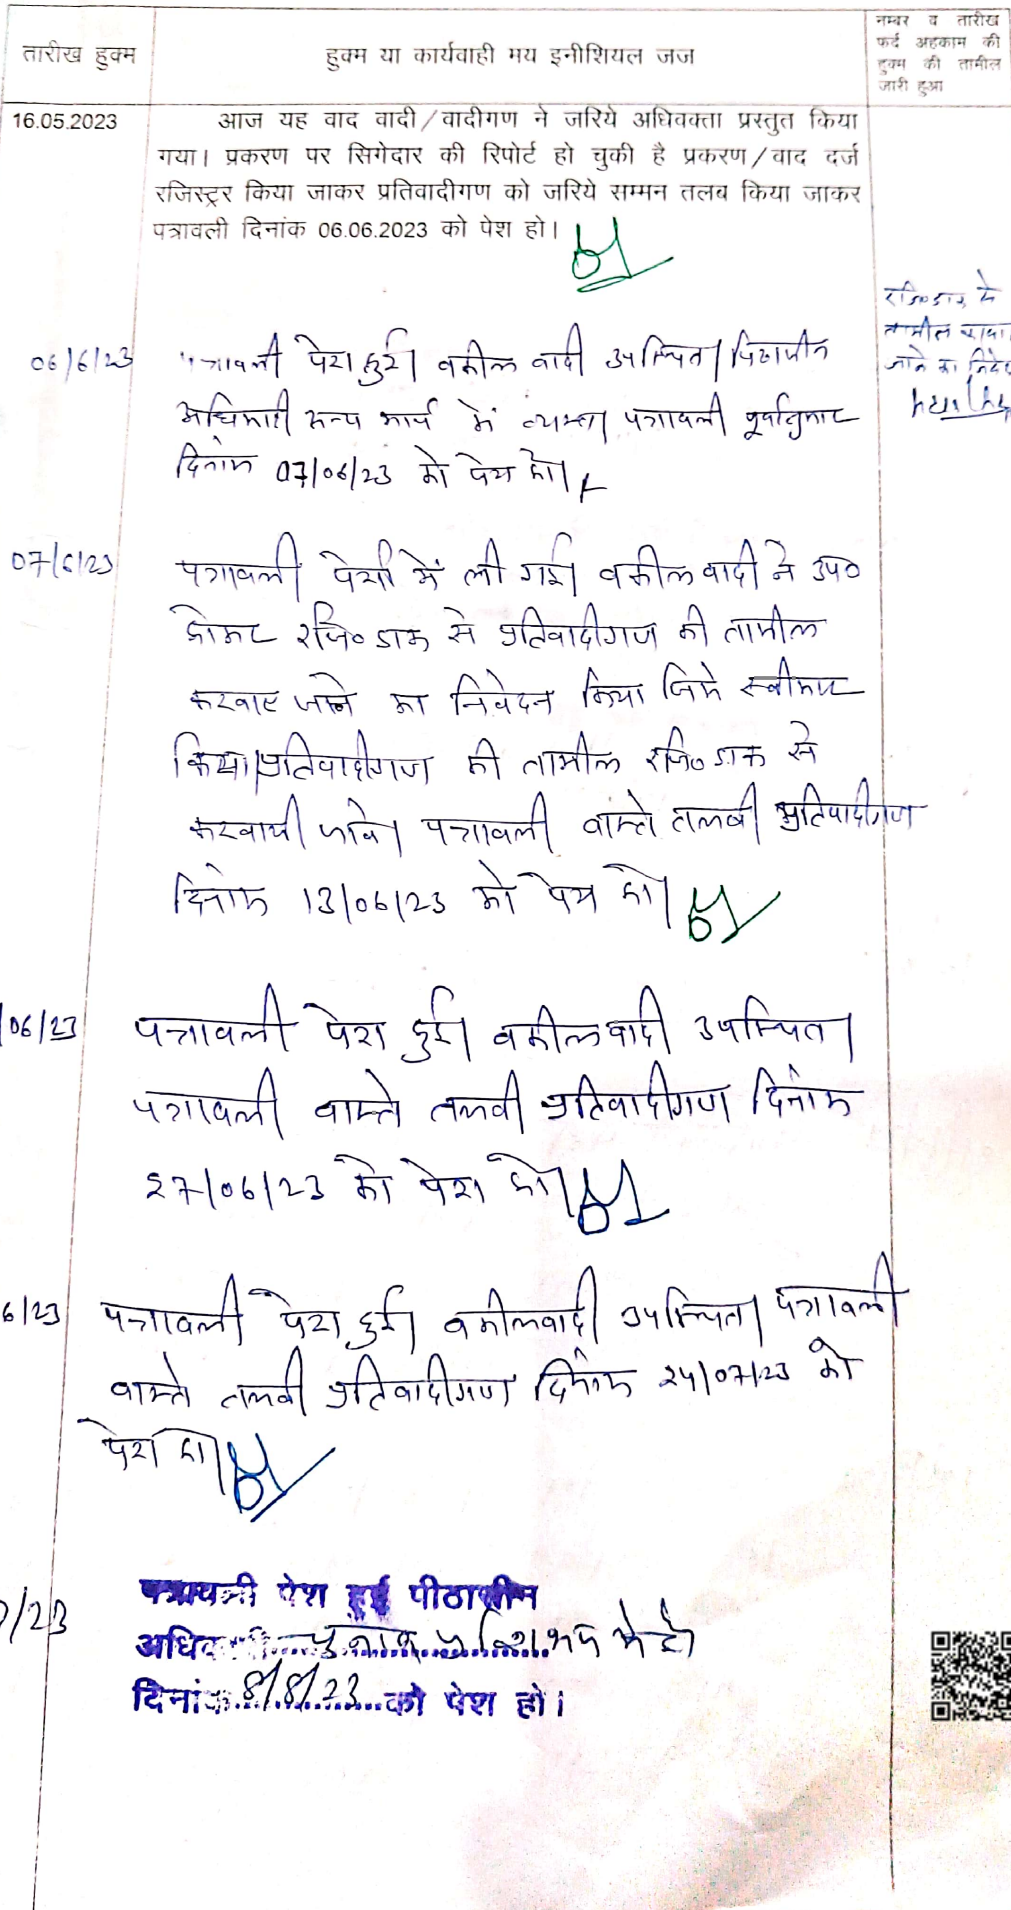 तारीख हुक्म
हुक्म या कार्यवाही मय इनीशियल जज
नम्बर व तारीख
फर्द अहकाम की
हुक्म की तामील
जारी हुआ
16.05.2023
आज यह वाद वादी/वादीगण ने जरिये अधिवक्ता प्रस्तुत किया
गया। प्रकरण पर सिगेदार की रिपोर्ट हो चुकी है प्रकरण/वाद दर्ज
रजिस्ट्रर किया जाकर प्रतिवादीगण को जरिये सम्मन तलब किया जाकर
पत्रावली दिनांक 06.06.2023 को पेश हो।
रजि० डाक से
तामील
जाने का
06/6/23
पत्रावली पेश हुई। वकील वादी उपस्थित। पिठासीन
अधिकारी अन्य कार्य में व्यस्त। पत्रावली पूर्वानुसार
दिनांक 07/06/23 को पेश हो।
07/6/23
पत्रावली पेशी में ली गई। वकील वादी ने उप०
होकर रजि० डाक से प्रतिवादीगण की तामील
करवाए जाने का निवेदन किया जिसे स्वीकार
किया। प्रतिवादीगण की तामील रजि० डाक से
करवायी जावे। पत्रावली वास्ते तलबी प्रतिवादीगण
दिनांक 13/06/23 को पेश हो।
/06/23
पत्रावली पेश हुई। वकील वादी उपस्थित।
पत्रावली वास्ते तलबी प्रतिवादीगण दिनांक
27/06/23 को पेश हो।
6/23
पत्रावली पेश हुई। वकील वादी उपस्थित। पत्रावली
वास्ते तलबी प्रतिवादीगण दिनांक 24/07/23 को
पेश हो।
/23
पत्रावली पेश हुई पीठासीन
में है
दिनांक 8/8/23 को पेश हो।